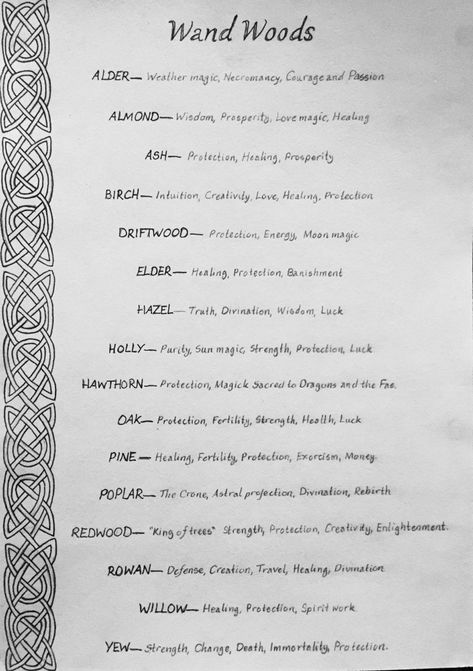 Wand Woods
ALDER— Weather magic, Necromancy, Courage and Passion
ALMOND— Wisdom, Prosperity, Love magic, Healing
ASH— Protection, Healing, Prosperity
BIRCH— Intuition, Creativity, Love, Healing, Protection
DRIFTWOOD— Protection, Energy, Moon magic
ELDER— Healing, Protection, Banishment
HAZEL— Truth, Divination, Wisdom, Luck
HOLLY— Purity, Sun magic, Strength, Protection, Luck
HAWTHORN— Protection, Magick Sacred to Dragons and the Fae.
OAK— Protection, Fertility, Strength, Health, Luck
PINE— Healing, Fertility, Protection, Exorcism, Money.
POPLAR— The Crone, Astral projection, Divination, Rebirth
REDWOOD— "King of trees" Strength, Protection, Creativity, Enlightenment.
ROWAN— Defense, Creation, Travel, Healing, Divination
WILLOW— Healing, Protection, Spirit work
YEW— Strength, Change, Death, Immortality, Protection.